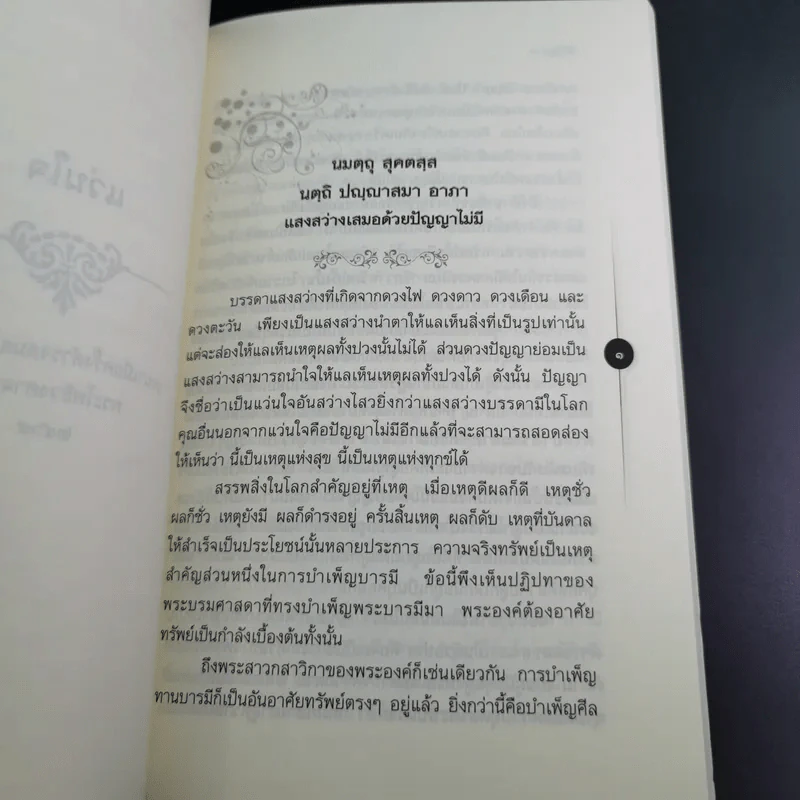 นมตฺถุ สุคตสฺส
นตฺถิ ปญฺญาสมา อาภา
แสงสว่างเสมอด้วยปัญญาไม่มี
บรรดาแสงสว่างที่เกิดจากดวงไฟ ดวงดาว ดวงเดือน และ
ดวงตะวัน เพียงเป็นแสงสว่างนำตาให้แลเห็นสิ่งที่เป็นรูปเท่านั้น
แต่จะส่องให้แลเห็นเหตุผลทั้งปวงนั้นไม่ได้ ส่วนดวงปัญญาย่อมเป็น
แสงสว่างสามารถนำใจให้แลเห็นเหตุผลทั้งปวงได้ ดังนั้น ปัญญา
จึงชื่อว่าเป็นแว่นใจอันสว่างไสวยิ่งกว่าแสงสว่างบรรดามีในโลก
คุณอื่นนอกจากแว่นใจคือปัญญาไม่มีอีกแล้วที่จะสามารถสอดส่อง
ให้เห็นว่า นี้เป็นเหตุแห่งสุข นี้เป็นเหตุแห่งทุกข์ได้
สรรพสิ่งในโลกสำคัญอยู่ที่เหตุ เมื่อเหตุดีผลก็ดี เหตุชั่ว
ผลก็ชั่ว เหตุยังมี ผลก็ดำรงอยู่ ครั้นสิ้นเหตุ ผลก็ดับ เหตุที่บันดาล
ให้สำเร็จเป็นประโยชน์นั้นหลายประการ ความจริงทรัพย์เป็นเหตุ
สำคัญส่วนหนึ่งในการบำเพ็ญบารมี ข้อนี้พึงเห็นปฏิปทาของ
พระบรมศาสดาที่ทรงบำเพ็ญพระบารมีมา พระองค์ต้องอาศัย
ทรัพย์เป็นกำลังเบื้องต้นทั้งนั้น
ถึงพระสาวกสาวิกาของพระองค์ก็เช่นเดียวกัน การบำเพ็ญ
ทานบารมีก็เป็นอันอาศัยทรัพย์ตรงๆ อยู่แล้ว ยิ่งกว่านี้คือบำเพ็ญศีล
๑
แว่นใจ